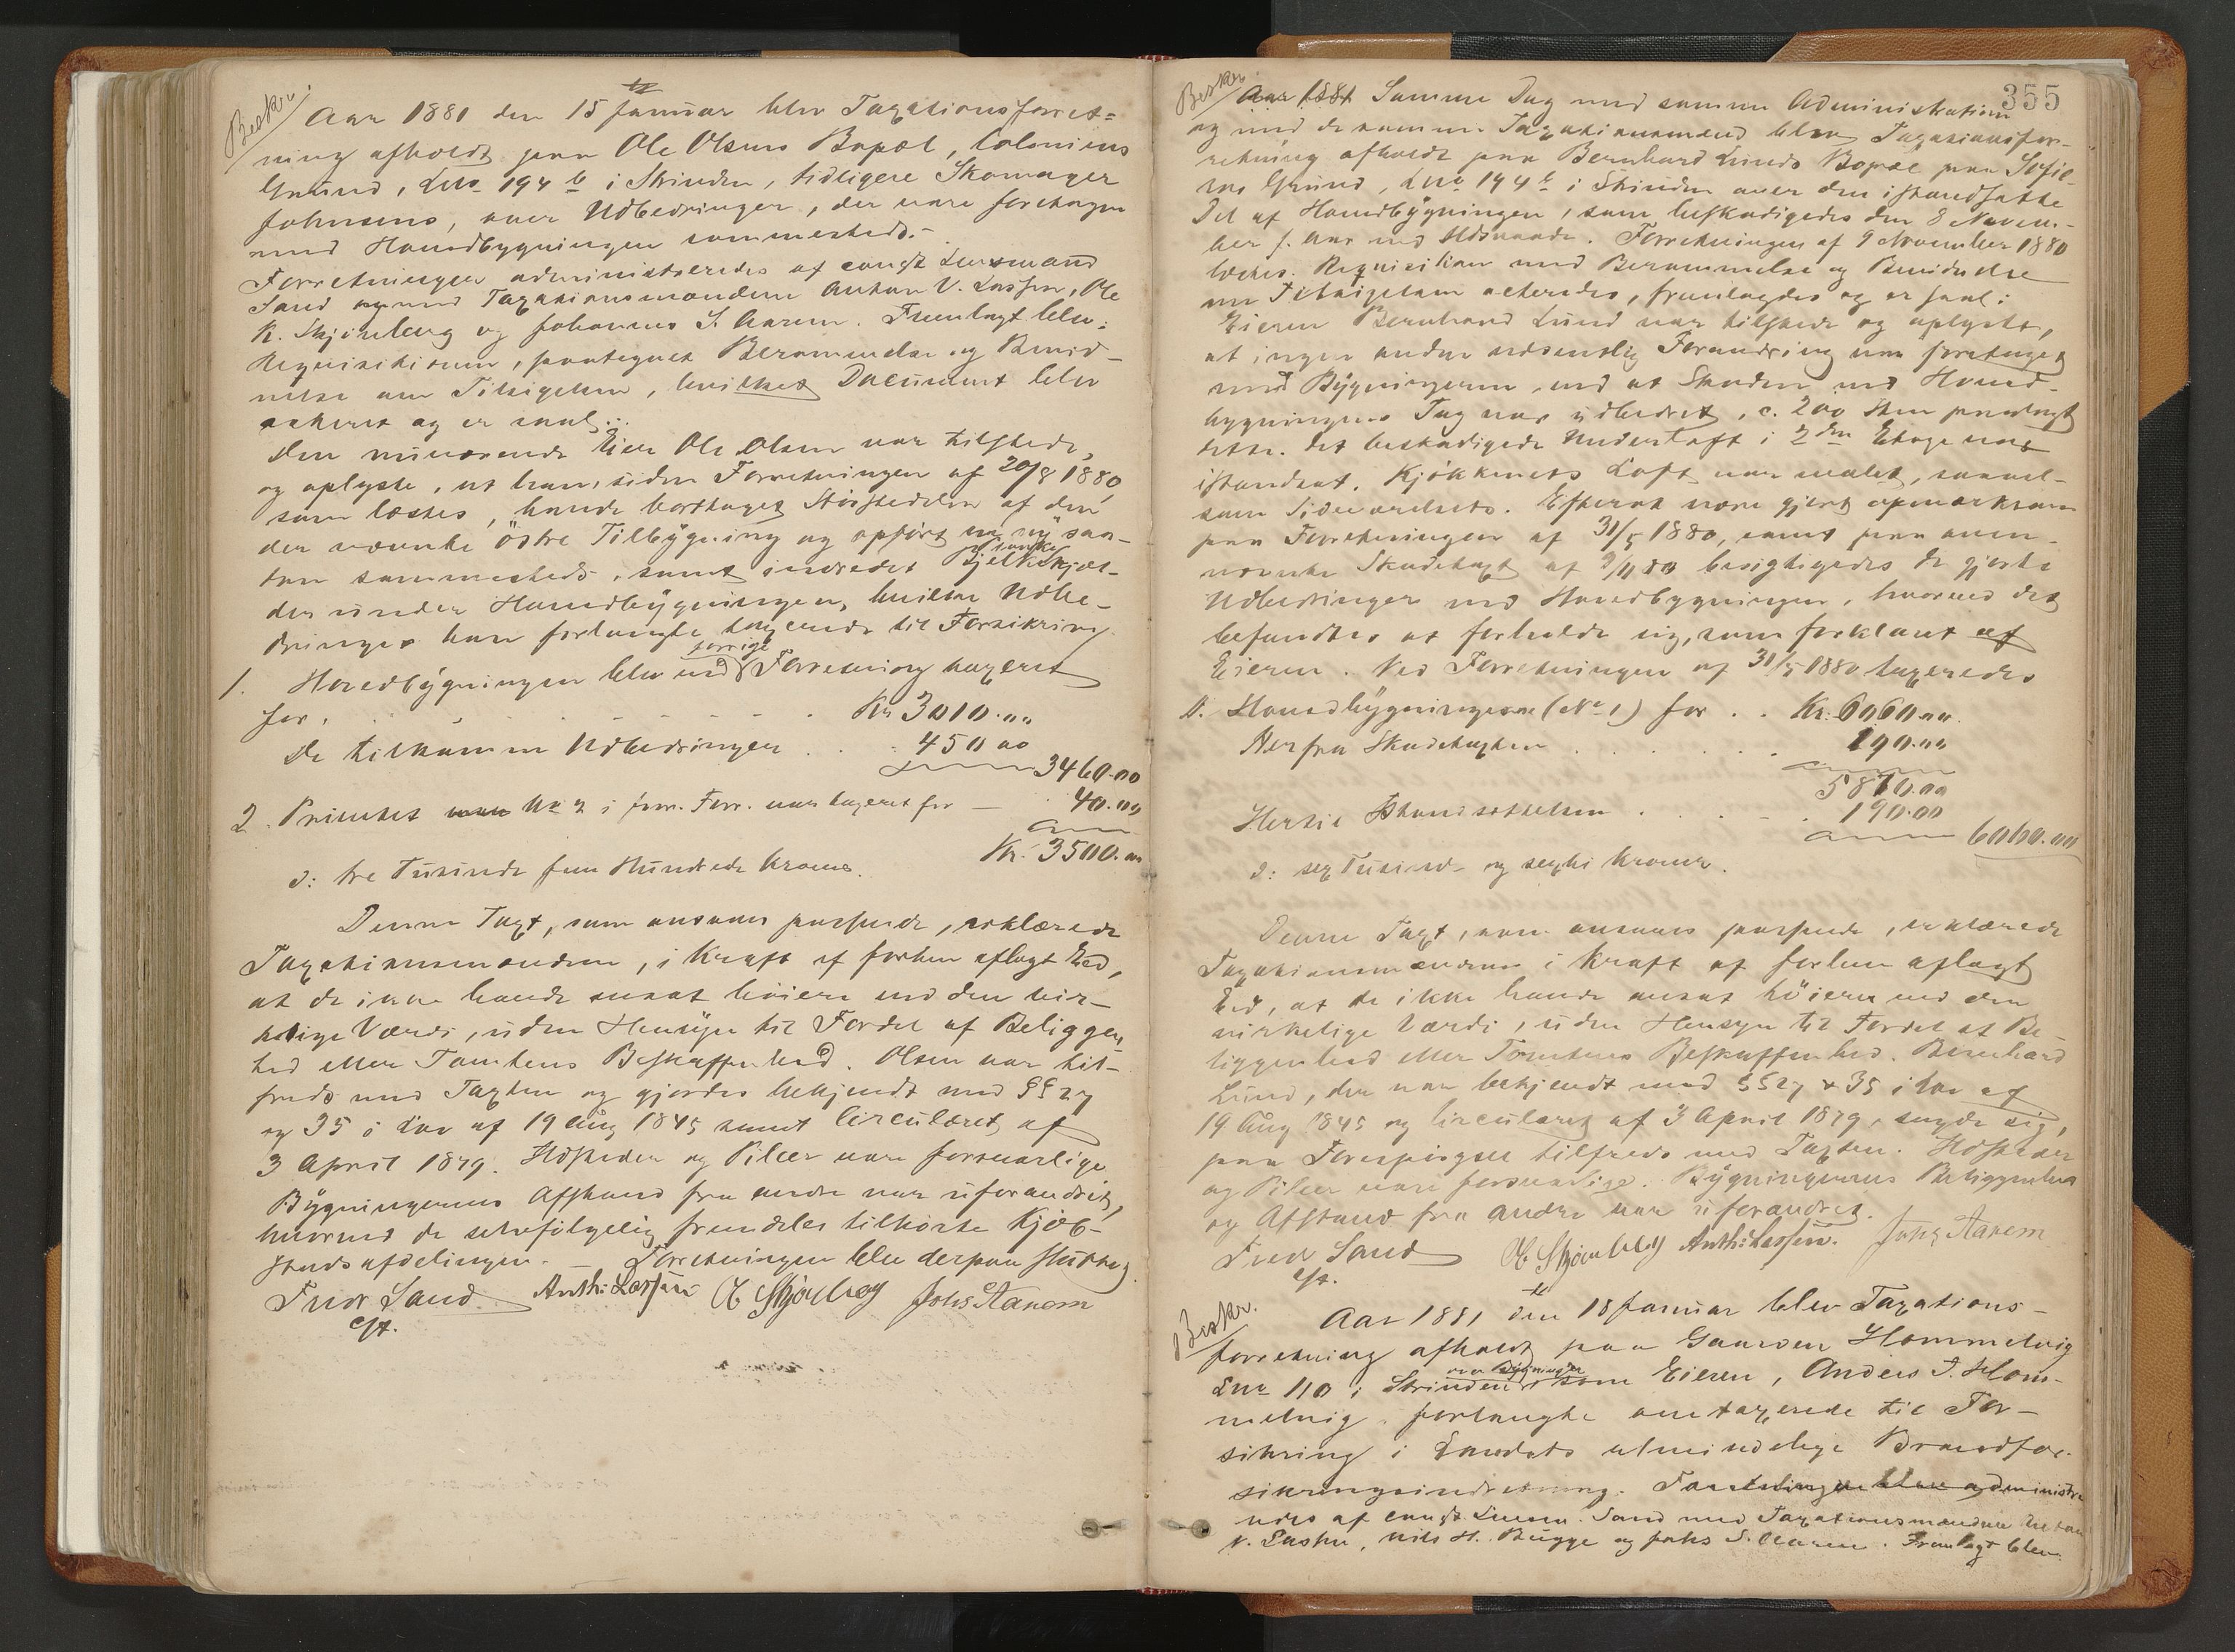 Beskr.
Aar 1881 den 15 Januar blev Taxationsforret=
ning afholdt paa Ole Olsens Bopæl, Coloniens
Grund, Lno 194 b i Strinden, tidligere Skomager
Johnsens, over Udbedringer, der vare foretagne
med Hovedbygningen sammesteds.-
Forretningen administreredes af const Lensmand
Sand og med Taxationsmændene Anton V. Lassen, Ole
K. Skjønberg og Johannes S. Aarem. Fremlagt blev:
Requisitionen, paategnet Berammelse og Bevid-
nelse om Tilsigelsen, hvilket Document blev
akteret og er saal:
Den nuværende Eier Ole Olsen var tilstede,
og oplyste, at han, siden Forretningen af 20/8 1880,
som læstes, havde borttaget Støistedelen af den
der nævnte östre Tilbygning og opført en ny saa-
dan sammesteds, samt indredet Kjæl-
der under Hovedbygningen, hvilke Udbe-
dringer han forlangte taxerede til Forsikring.
1. Hovedbygningen blev ved forrige Forretning taxeret
for. . . . . . Kr 3010.00
De tilkomne Udbedringer . . . 450 00
3460.00
2. Privetet No 2 i forr. Forr. var taxeret for — 40.00
Kr. 3500.00
ɔ: tre Tusinde fem Hundrede Kroner.
Denne Taxt, som ansaaes passende, erklærede
Taxationsmændene, i Kraft af forhen aflagt Eed,
at de ikke havde ansat høiere end den vir-
kelige Værdi, uden Hensyn til Fordel af Beliggen-
hed eller Tomtens Beskaffenhed. Olsen var til-
freds med Taxten og gjordes bekjendt med §§ 27
og 35 i Lov af 19 Aug 1845 samt Circulæret af
3 April 1879. Ildsteder og Piber vare forsvarlige
Bygningernes Afstand fra andre var uforandret,
hvorved de selvfølgelig fremdeles tilhørte Kjøb-
stadsafdelingen. — Forretningen blev derpaa sluttet.
Fredr Sand Anth: Lassen O K Skjønberg Johs Aarem
cst.
355
Beskr.
Aar 1881 Samme Dag med samme Administration
og med de samme Taxationsmænd blev Taxationsfor-
retning afholdt paa Bernhard Lunds Bopæl paa Sofie-
Grund, Lno 194 b i Strinden over den istandsatte
Del af Hovedbygningen, som beskadigedes den 8 Novem-
ber f. Aar ved Ildsvaade. Forretningen af 9 November 1880
læstes. Requisition med Berammelse og Bevidnelse
om Tilsigelsen akteredes, fremlagdes og er saal:
Eieren Bernhard Lund var tilstede og oplyste,
at ingen anden væsentlig Forandring var foretaget
med Bygningerne, end at Skaden ved Hoved-
bygningens Tag var udbedret, c. 200 Sten paalagt
dette. Det beskadigede Underloft i 2den Etage var
istandsat. Kjøkkenets Loft var malet, saavel-
som Sideværelsets. Efterat være gjort opmærksom
paa Forretningen af 31/5 1880, samt paa oven-
nævnte Skadetaxt af 9/11 80 besigtigedes de gjorte
Udbedringer ved Hovedbygningen, hvorved det
befandtes at forholde sig, som forklaret af
Eieren. Ved Forretningen af 31/5 1880 taxeredes
1. Hovedbygningen (No 1) for . . Kr. 6060.00.
Herfra Skadetaxten . . . . . . 190.00
5870.00
Hertil Istandsættelsen . . . . . 190.00
6060.00
ɔ: sex Tusinde og sexti Kroner.
Denne Taxt, som ansaaes passende, erklærede
Taxationsmændene i Kraft af forhen aflagt
Eed, at de ikke havde ansat höiere end den
virkelige Værdi, uden Hensyn til Fordel af Be-
liggenhed eller Tomtens Beskaffenhed. Bernhard
Lund, der var bekjendt med §§ 27 & 35 i Lov af
19 Aug 1845 og Circulæret af 3 April 1879, sagde sig,
paa Forespørgsel tilfreds med Taxten. Ildsteder
og Piber vare forsvarlige. Bygningernes Beliggenhed
og Afstand fra andre var uforandret.
Fredr Sand O K Skjønberg Anth: Lassen. Johs Aarem
cst.
Beskr.
Aar 1881 den 18 Januar blev Taxations-
forretning afholdt paa Gaarden Hommelvig
Lno 110 i Strinden over Bygninger som Eieren, Anders J. Hom-
melvig, forlangte omtaxerede til For-
sikring i Landets almindelige Brandfor-
sikringsindretning. Forretningen blev administre-
redes af const. Lensm. Sand med Taxationsmændene Anton
V. Lassen, Nils H. Bugge og Johs S. Aarem. Fremlagt blev: